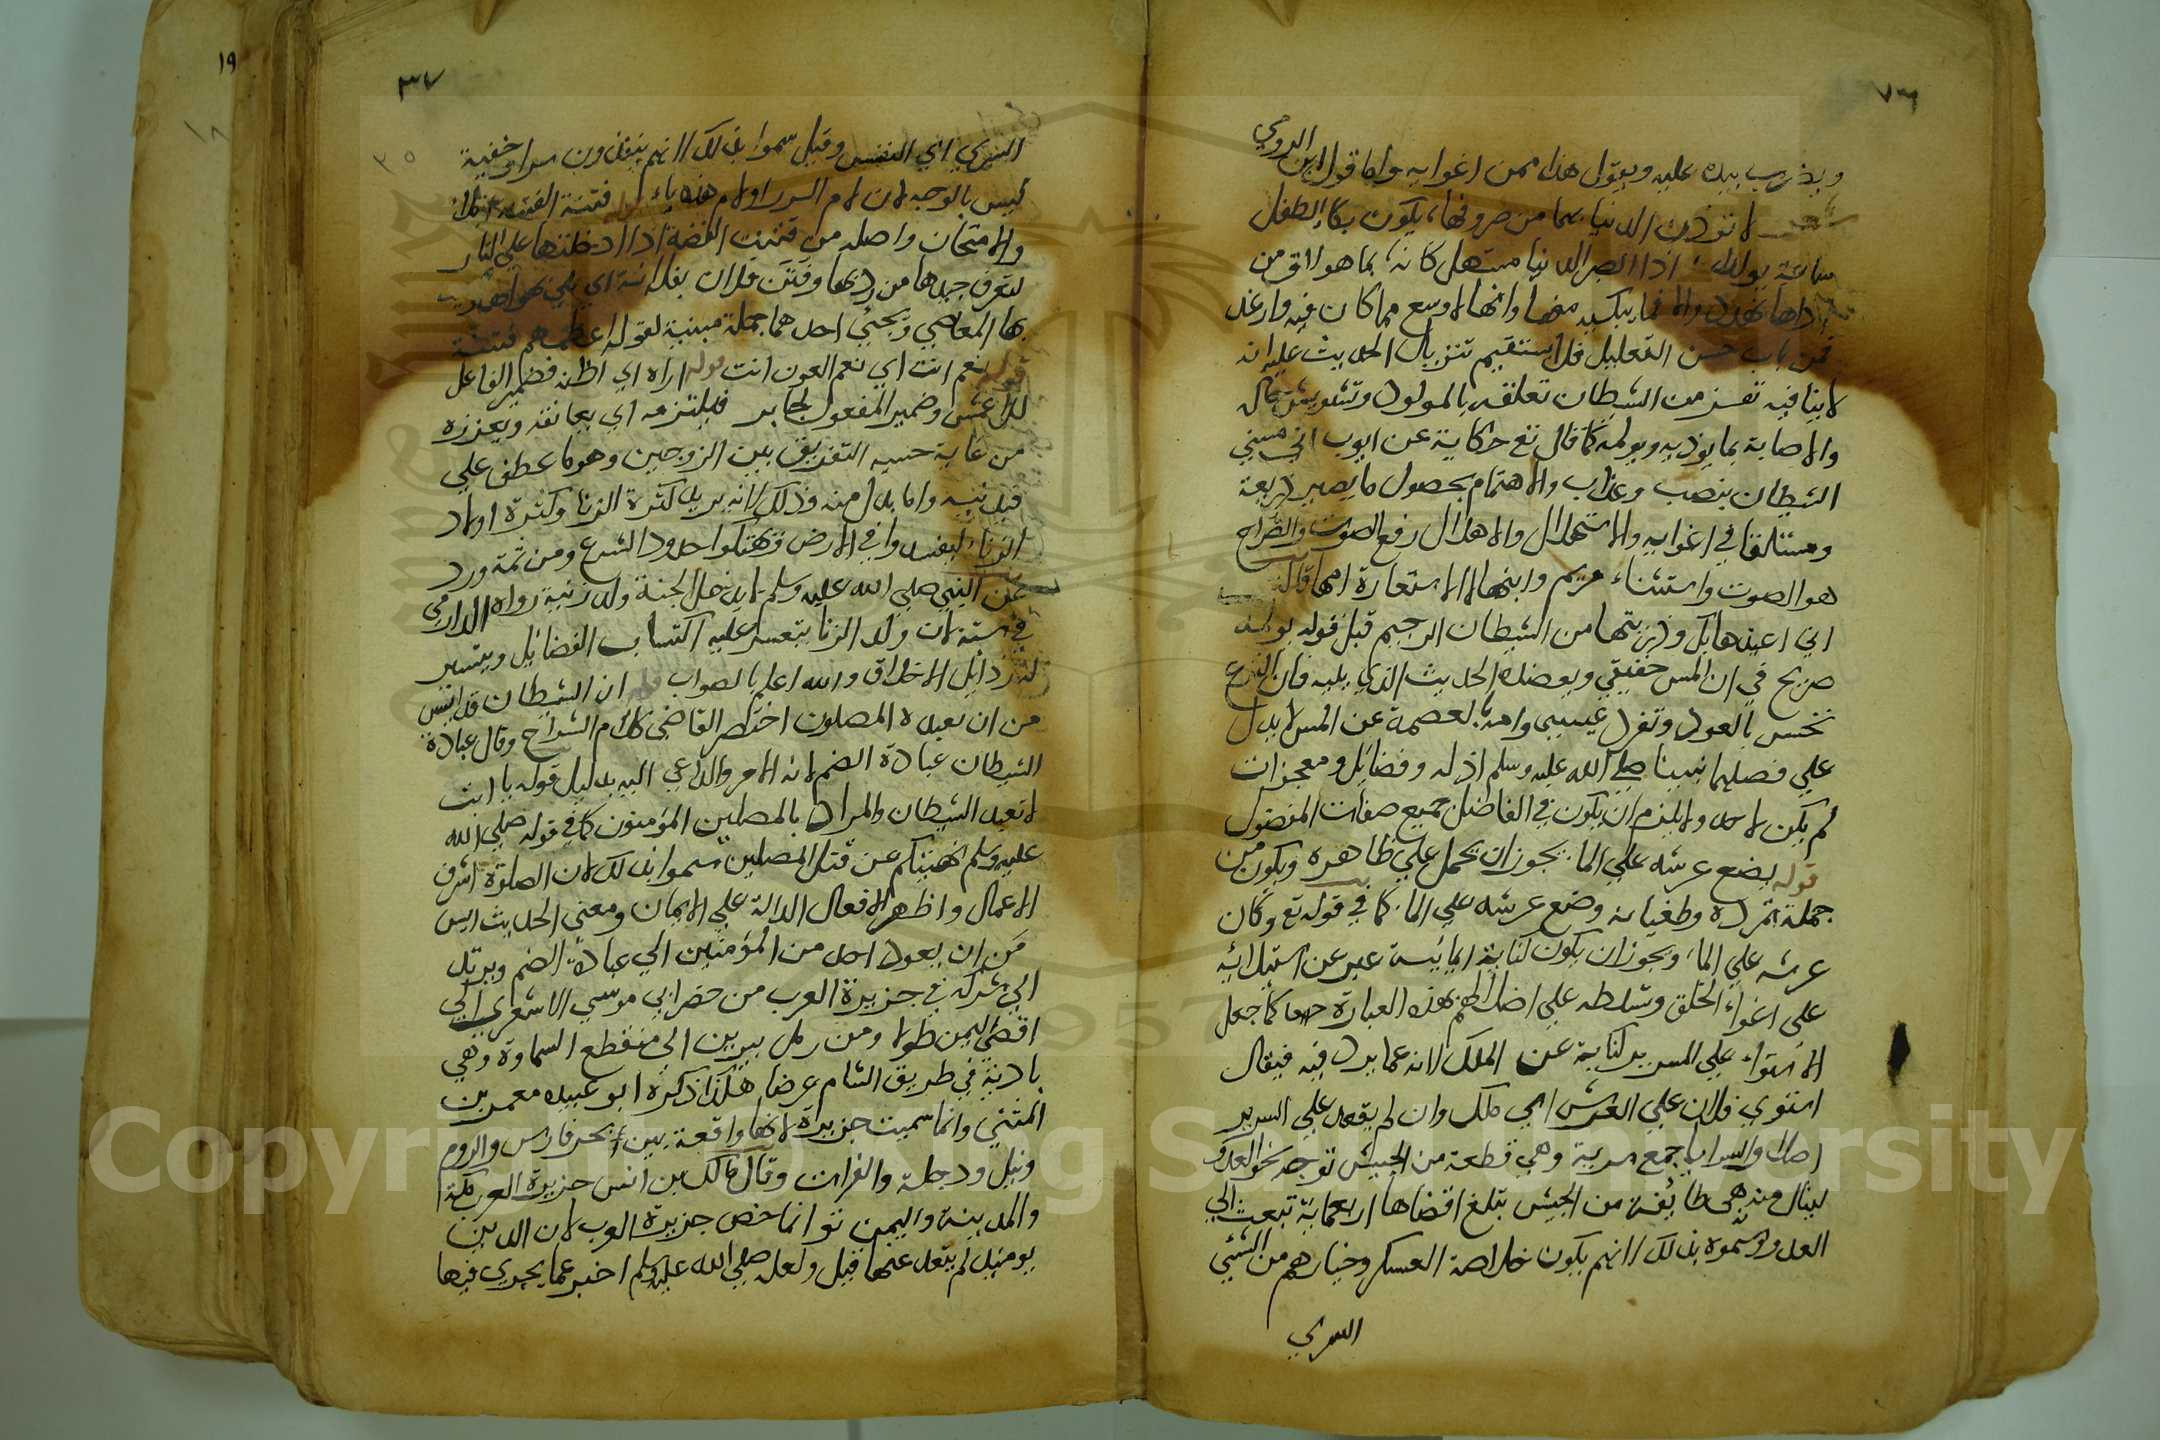 ٧٦
ويضرب بيده عليه ويقول هذا ممن اغوايه واما قول ابن الرومي
لما توذن الدنيا بها من صروفها، يكون بكاء الطفل
ساعة يولد اذا ابصر الدنيا مستهل كانه، بما هو لاق من
اذاها يهدد والا فما يبكيه منها وانها لاوسع مما كان فيه وارغد
فمن باب حسن التعليل فلا يستقيم تنزيل الحديث عليه انه
لا ينافيه نفس من الشيطان تعلقه بالمولود وتشويش حاله
والاصابة بما يوذيه ويولمه كما قال تع حكاية عن ايوب اني مسني
الشيطان بنصب وعذاب والاهتمام بحصول ما يصير ذريعة
ومتسلقا في اغوايه والاستهلال والاهلال رفع الصوت والصراخ
هو الصوت واستثناء مريم وابنها لاستعاذة امها قالت
اني اعيذها بك وذريتها من الشيطان الرجيم قيل قوله يولد
صريح في ان المس حقيقي ويعضده الحديث الذي يليه فان النزع
نخس بالعود وتفرد عيسى وامه بالعصمة عن المس لا يدل
علي فضلهما نبينا صلى الله عليه وسلم اذ له وفضائل ومعجزات
لم يكن لاحد ولا يلزم ان يكون في الفاضل جميع صفات المفضول
قوله يضع عرشه علي الماء يجوز ان يحمل علي ظاهره ويكون من
جملة تمرده وطغيانه وضع عرشه علي الماء كما في قوله تع وكان
عرشه علي الماء ويجوز ان يكون كناية ايمائية عبر عن استيلائه
علي اغواء الخلق وتسلطه علي اضلالهم بهذه العبارة كما جعل
الاستواء علي السرير كناية عن الملك لانه عما يردف فيه فيقال
استوي فلان علي العرش اي ملك وان لم يقعد علي السرير
اصلا والسرايا جمع سرية وهي قطعة من الجيش توجه نحو العدو
لينال منه هي طائفة من الجيش تبلغ اقصاها اربعمائة تبعث الي
العدو وسموه بذلك لانهم يكون خلاصة العسكر وخيارهم من الشيي
السري
١٩
٣٧
السري اي النفيس وقيل سموا بذلك لانهم ينفذون سرا وخفية
ليس بالوجه لان لام السر راء ولام هذه ياء قوله فتنة الفتنة الابتلاء
والامتحان واصله من فتنت الفضة اذا ادخلتها علي النار
لتعرف جيدها من رديها وفتن فلان بفلانة اي بلي بهواها
بها المعاصي ويجئ احدهما جملة مبنية لقوله اعظمهم فتنة
قوله نعم انت اي نعم العون انت قوله اراه اي اظنه فضمير الفاعل
للاعمش وضمير المفعول لجابر فيلتزمه اي يعانقه ويعززه
من غاية حسبه التفريق بين الزوجين وهو عطف علي
فيدنيه واما بدل منه وذلك لانه يريد كثرة الزنا وكثرة اولاد
الزناء ليفسدوا في الارض فيهتكوا حدود الشرع ومن ثمة ورد
عن النبي صلي الله عليه وسلم لا يدخل الجنة ولد زنية رواه الدارمي
في سننه لان ولد الزنا يتعسر عليه اكتساب الفضائل ويتيسر
له رذايل الاخلاق والله اعلم بالصواب قوله ان الشيطان قد ايس
من ان يعبده المصلون اختصر القاضي كلام الشراح وقال عبادة
الشيطان عبادة الصنم لانه الامر والداعي اليه بدليل قوله يا ابت
لا تعبد الشيطان والمراد بالمصلين المؤمنون كما في قوله صلي الله
عليه وسلم نهيتكم عن قتل المصلين سموا بذلك لان الصلوة اشرف
الاعمال واظهر الافعال الدالة علي الايمان ومعني الحديث ايس
من ان يعود احد من المؤمنين الي عبادة الصنم ويرتد
الي شركه في جزيرة العرب من حضر ابي موسي الاشعري الي
اقصي اليمن طولا ومن رمل يبرين الي منقطع السماوة وهي
بادية في طريق الشام عرضا هكذا ذكره ابو عبيده معمر بن
المثني وانما سميت جزيرة لانها واقعة بين بحر فارس والروم
ونيل ودجلة والفرات وقال مالك بن انس جزيرة العرب مكة
والمدينة واليمن تو انما خص جزيرة العرب لان الدين
يومئذ لم يتعد عنها قيل ولعله صلي الله عليه وسلم اخبر عما يجري فيها